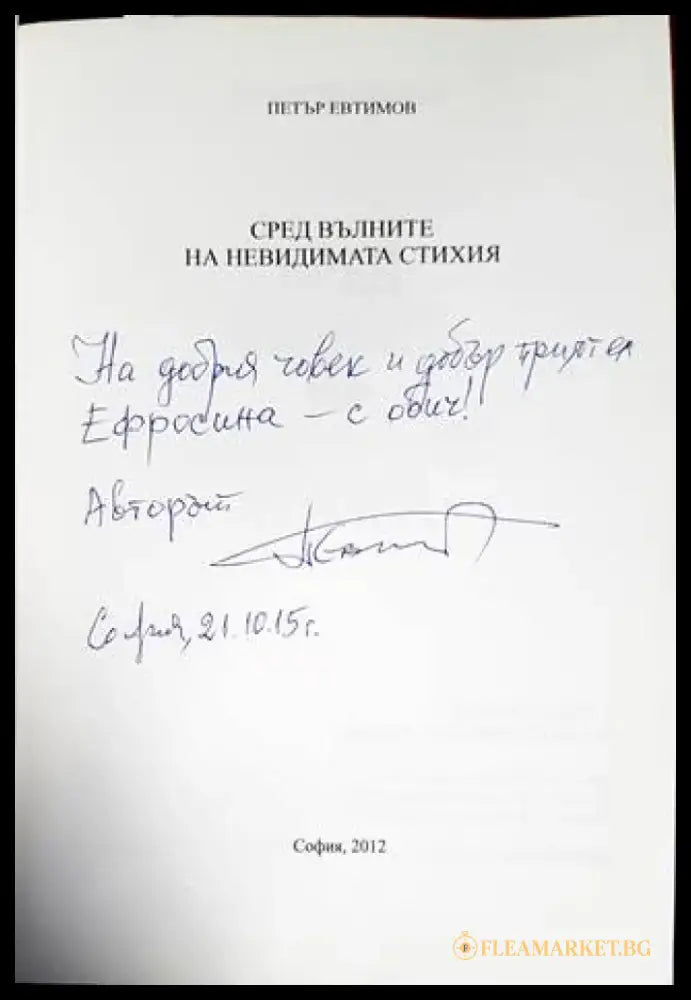 ПЕТЪР ЕВТИМОВ
СРЕД ВЪЛНИТЕ
НА НЕВИДИМАТА СТИХИЯ
На добрия човек и добър приятел
Ефросина – с обич!
Авторът
София, 21.10.15г.
София, 2012
FLEAMARKET.BG